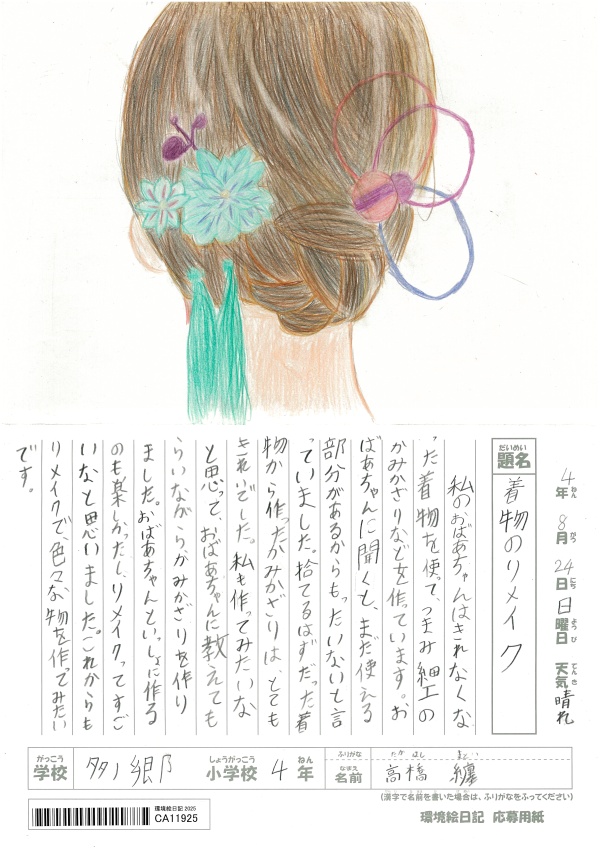 4年 8月 24日 日曜日 天気 晴れ
ねん がつ にち ようび てんき
だいめい
題名
着物のリメイク
私のおばあちゃんはきれなくな
った着物を使って、つまみ細工の
かみかざりなどを作っています。お
ばあちゃんに聞くと、まだ使える
部分があるからもったいないと言
っていました。捨てるはずだった着
物から作ったかみかざりは、とても
きれいでした。私も作ってみたいな
と思って、おばあちゃんに教えても
らいながら、かみかざりを作り
ました。おばあちゃんといっしょに作る
のも楽しかったし、リメイクってすご
いなと思いました。これからも
リメイクで、色々な物を作ってみたい
です。
がっこう しょうがっこう ねん ふりがな たか はし まとい
学校 多郷 小学校 4年 なまえ 名前 高橋 纏
(漢字で名前を書いた場合は、ふりがなをふってください)
環境絵日記 2025
CA11925
環境絵日記 応募用紙